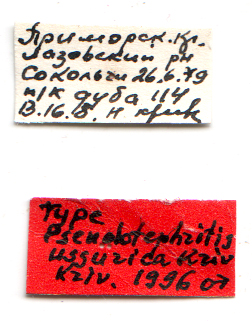 Приморск. кр.
Лазовский рн
Соколчи 26.6.79
п/к дуба 114
В.16.8. Н крив
Type
Pseudotephritis
ussurica Kriv
Kriv. 1996 ♂